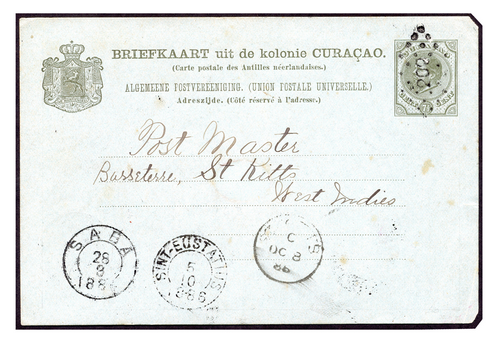 BRIEFKAART uit de kolonie CURAÇAO.
(Carte postale des Antilles néerlandaises.)
ALGEMEENE POSTVEREENIGING. (UNION POSTALE UNIVERSELLE.)
Adreszijde. (Côté réservé à l'adresse.)
202
Post Master
Basseterre, St Kitts
West Indies
SABA
28
8
188
SINT-EUSTATIUS
8
10
1886
C
OC 8
86